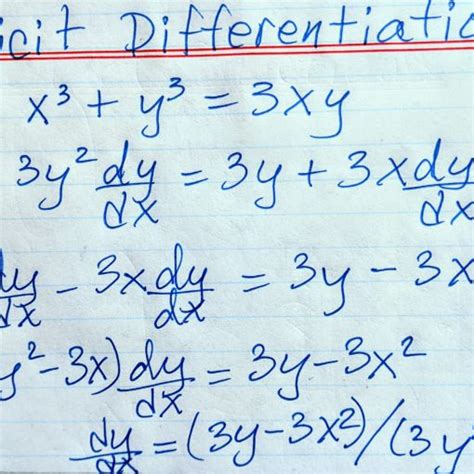 icit Differentiatic
x³ + y³ = 3xy
3y² dy/dx = 3y + 3x dy/dx
dy/dx - 3x dy/dx = 3y - 3x
y² - 3x) dy/dx = 3y - 3x²
dy/dx = (3y - 3x²)/(3y